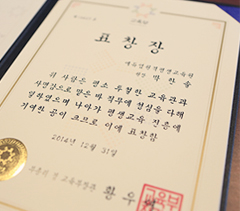 표 창 장
예올남원격평생교육원
원장 박 찬 솔
위 사람은 평소 투철한 교육관과
사명감으로 맡은 바 직무에 성실을 다해
왔으며 나아가 평생교육 진흥에
기여한 공이 크므로 이에 표창함
2014년 12월 31일
부총리 겸 교육부장관 황우